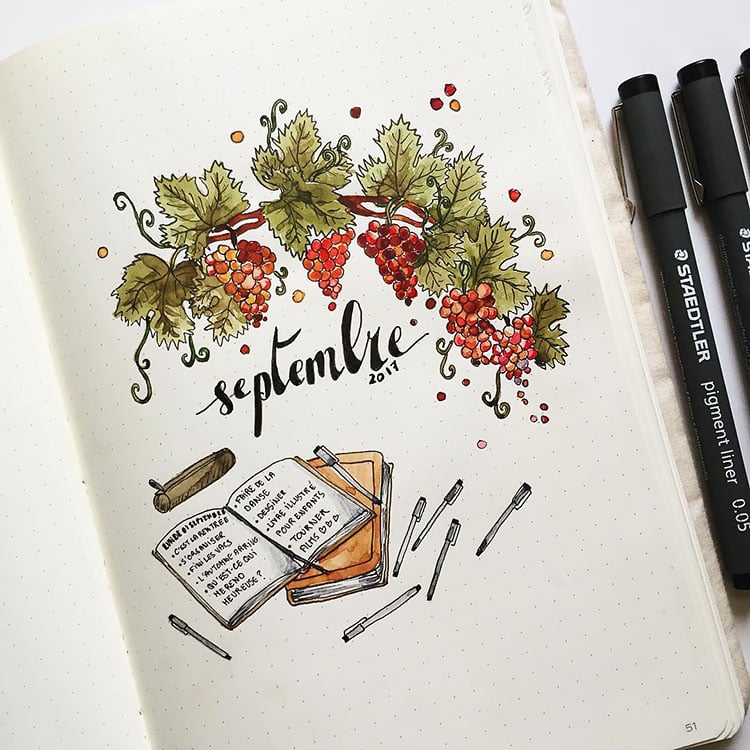 septembre
2017
LUNDI 01 SEPTEMBRE
• C'EST LA RENTRÉE
• S'ORGANISER
• FINI LES VACS
• L'AUTOMNE ARRIVE
• QU'EST-CE QUI
ME REND
HEUREUSE ?
FAIRE DE LA
DANSE
• DESSINER
• LIVRE ILLUSTRÉ
POUR ENFANTS
TOURNER
FILMS ♡♡♡
STAEDTLER
pigment liner
0.05
51